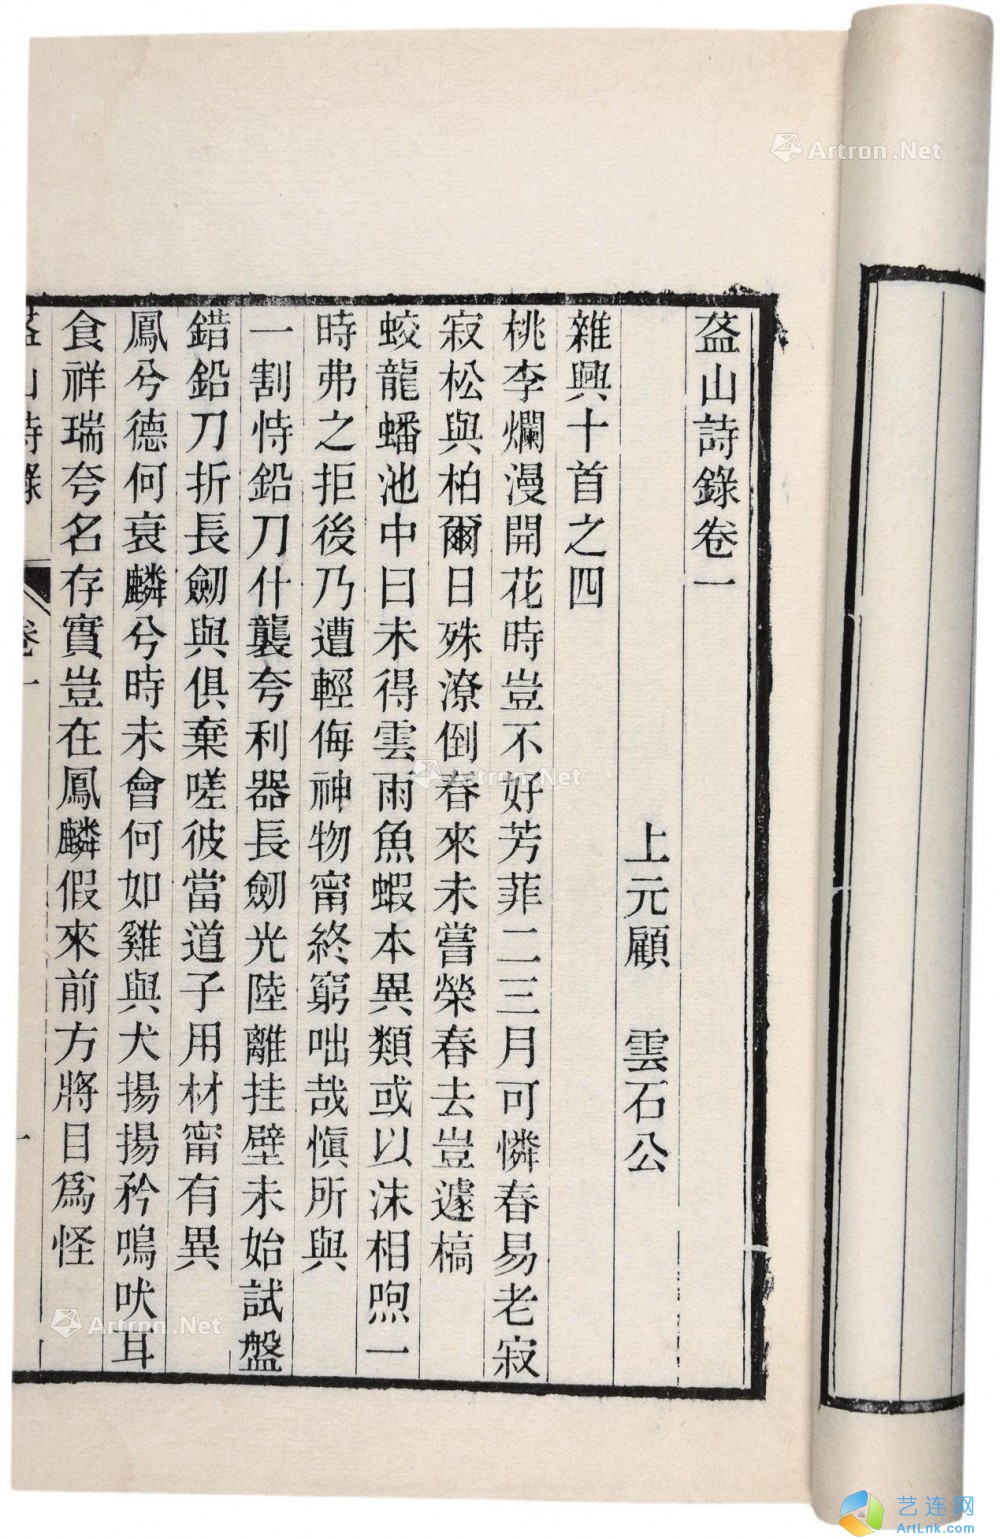 盋山詩錄卷一
上元顧　雲石公
雜興十首之四
桃李爛漫開花時豈不好芳菲二三月可憐春易老寂
寂松與柏爾日殊潦倒春來未嘗榮春去豈遽槁
蛟龍蟠池中曰未得雲雨魚蝦本異類或以沫相煦一
時弗之拒後乃遭輕侮神物甯終窮咄哉愼所與
一割恃鉛刀什襲夸利器長劒光陸離挂壁未始試盤
錯鉛刀折長劒與俱棄嗟彼當道子用材甯有異
鳳兮德何衰麟兮時未會何如雞與犬揚揚矜鳴吠耳
食祥瑞夸名存實豈在鳳麟假來前方將目爲怪
盋山詩錄
卷一
一
Artron.Net
Artron.Net
Artron.Net
艺连网
ArtLnk.com